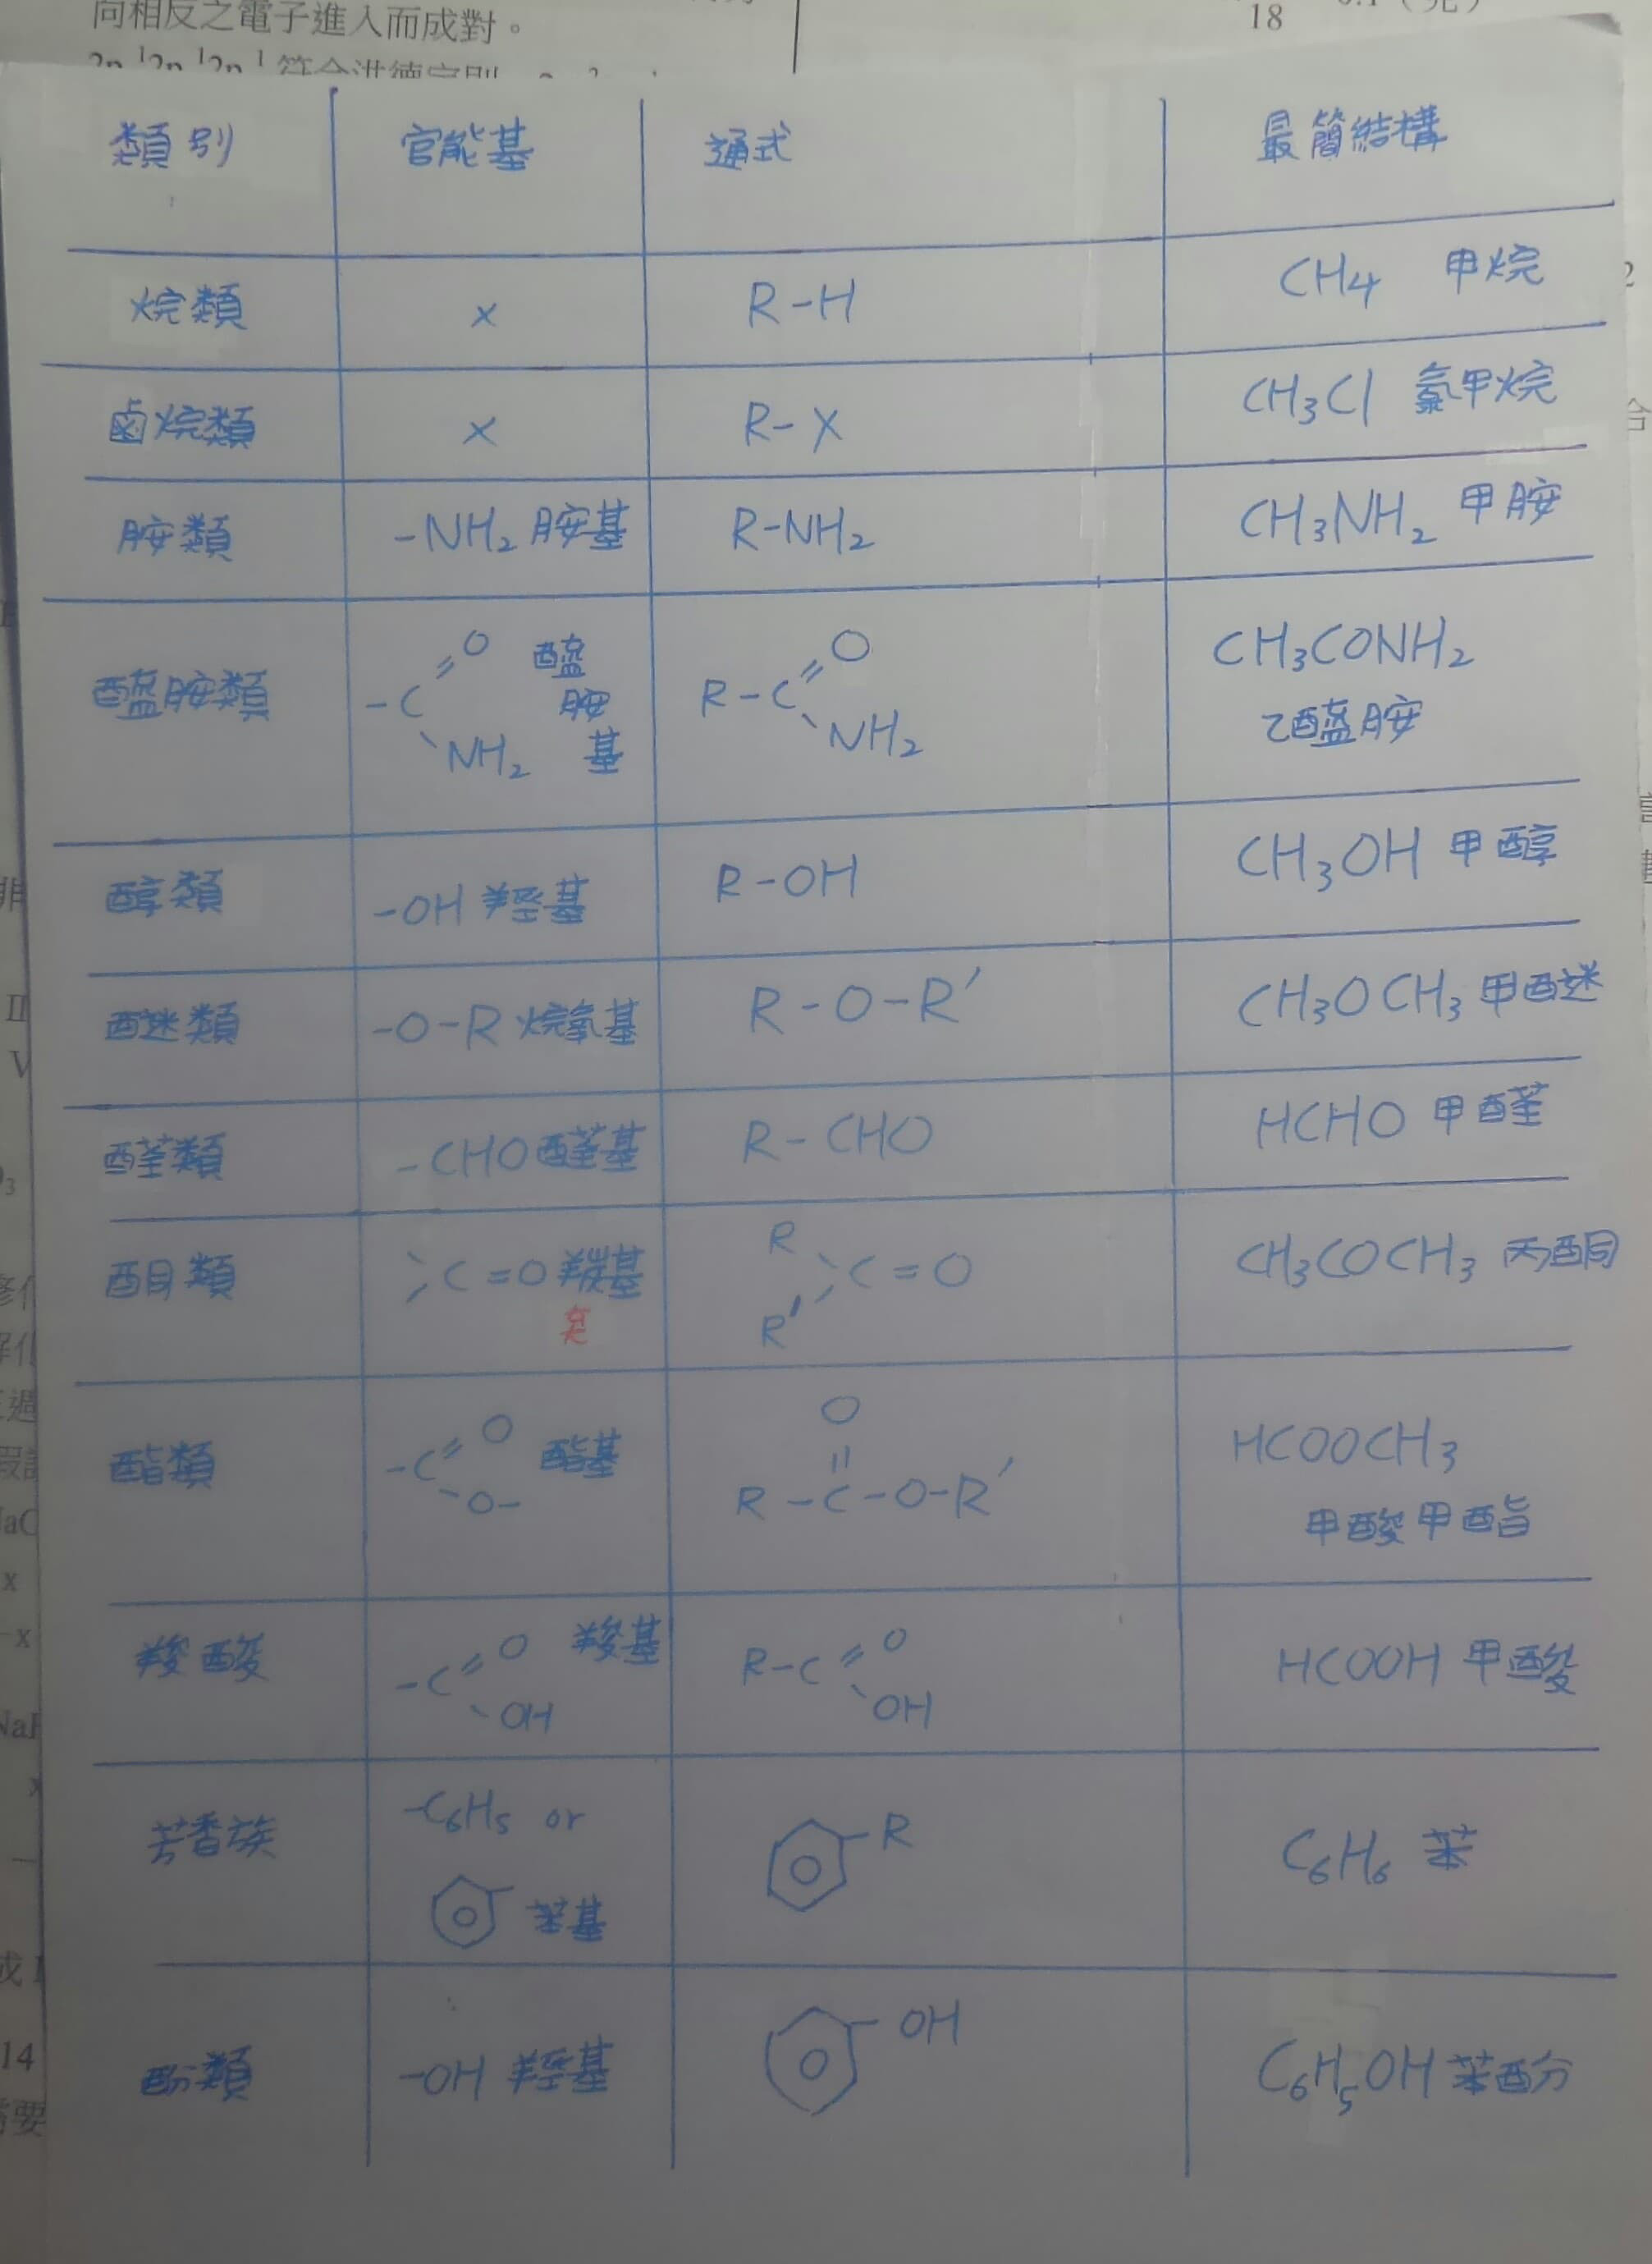 向相反之電子進入而成對。
18
類別 官能基 通式 最簡結構
烷類 x R-H CH4 甲烷
鹵烷類 x R-X CH3Cl 氯甲烷
胺類 -NH2 胺基 R-NH2 CH3NH2 甲胺
醯胺類 -C=O NH2 醯胺基 R-C=O NH2 CH3CONH2
乙醯胺
醇類 -OH 羥基 R-OH CH3OH 甲醇
醚類 -O-R 烷氧基 R-O-R' CH3OCH3 甲醚
醛類 -CHO 醛基 R-CHO HCHO 甲醛
酮類 >C=O 羰基 R R' >C=O CH3COCH3 丙酮
酯類 -C=O -O- 酯基 R-C-O-R' =O HCOOCH3
甲酸甲酯
羧酸 -C=O -OH 羧基 R-C=O OH HCOOH 甲酸
芳香族 -C6H5 or 苯基 R C6H6 苯
酚類 -OH 羥基 -OH C6H5OH 苯酚